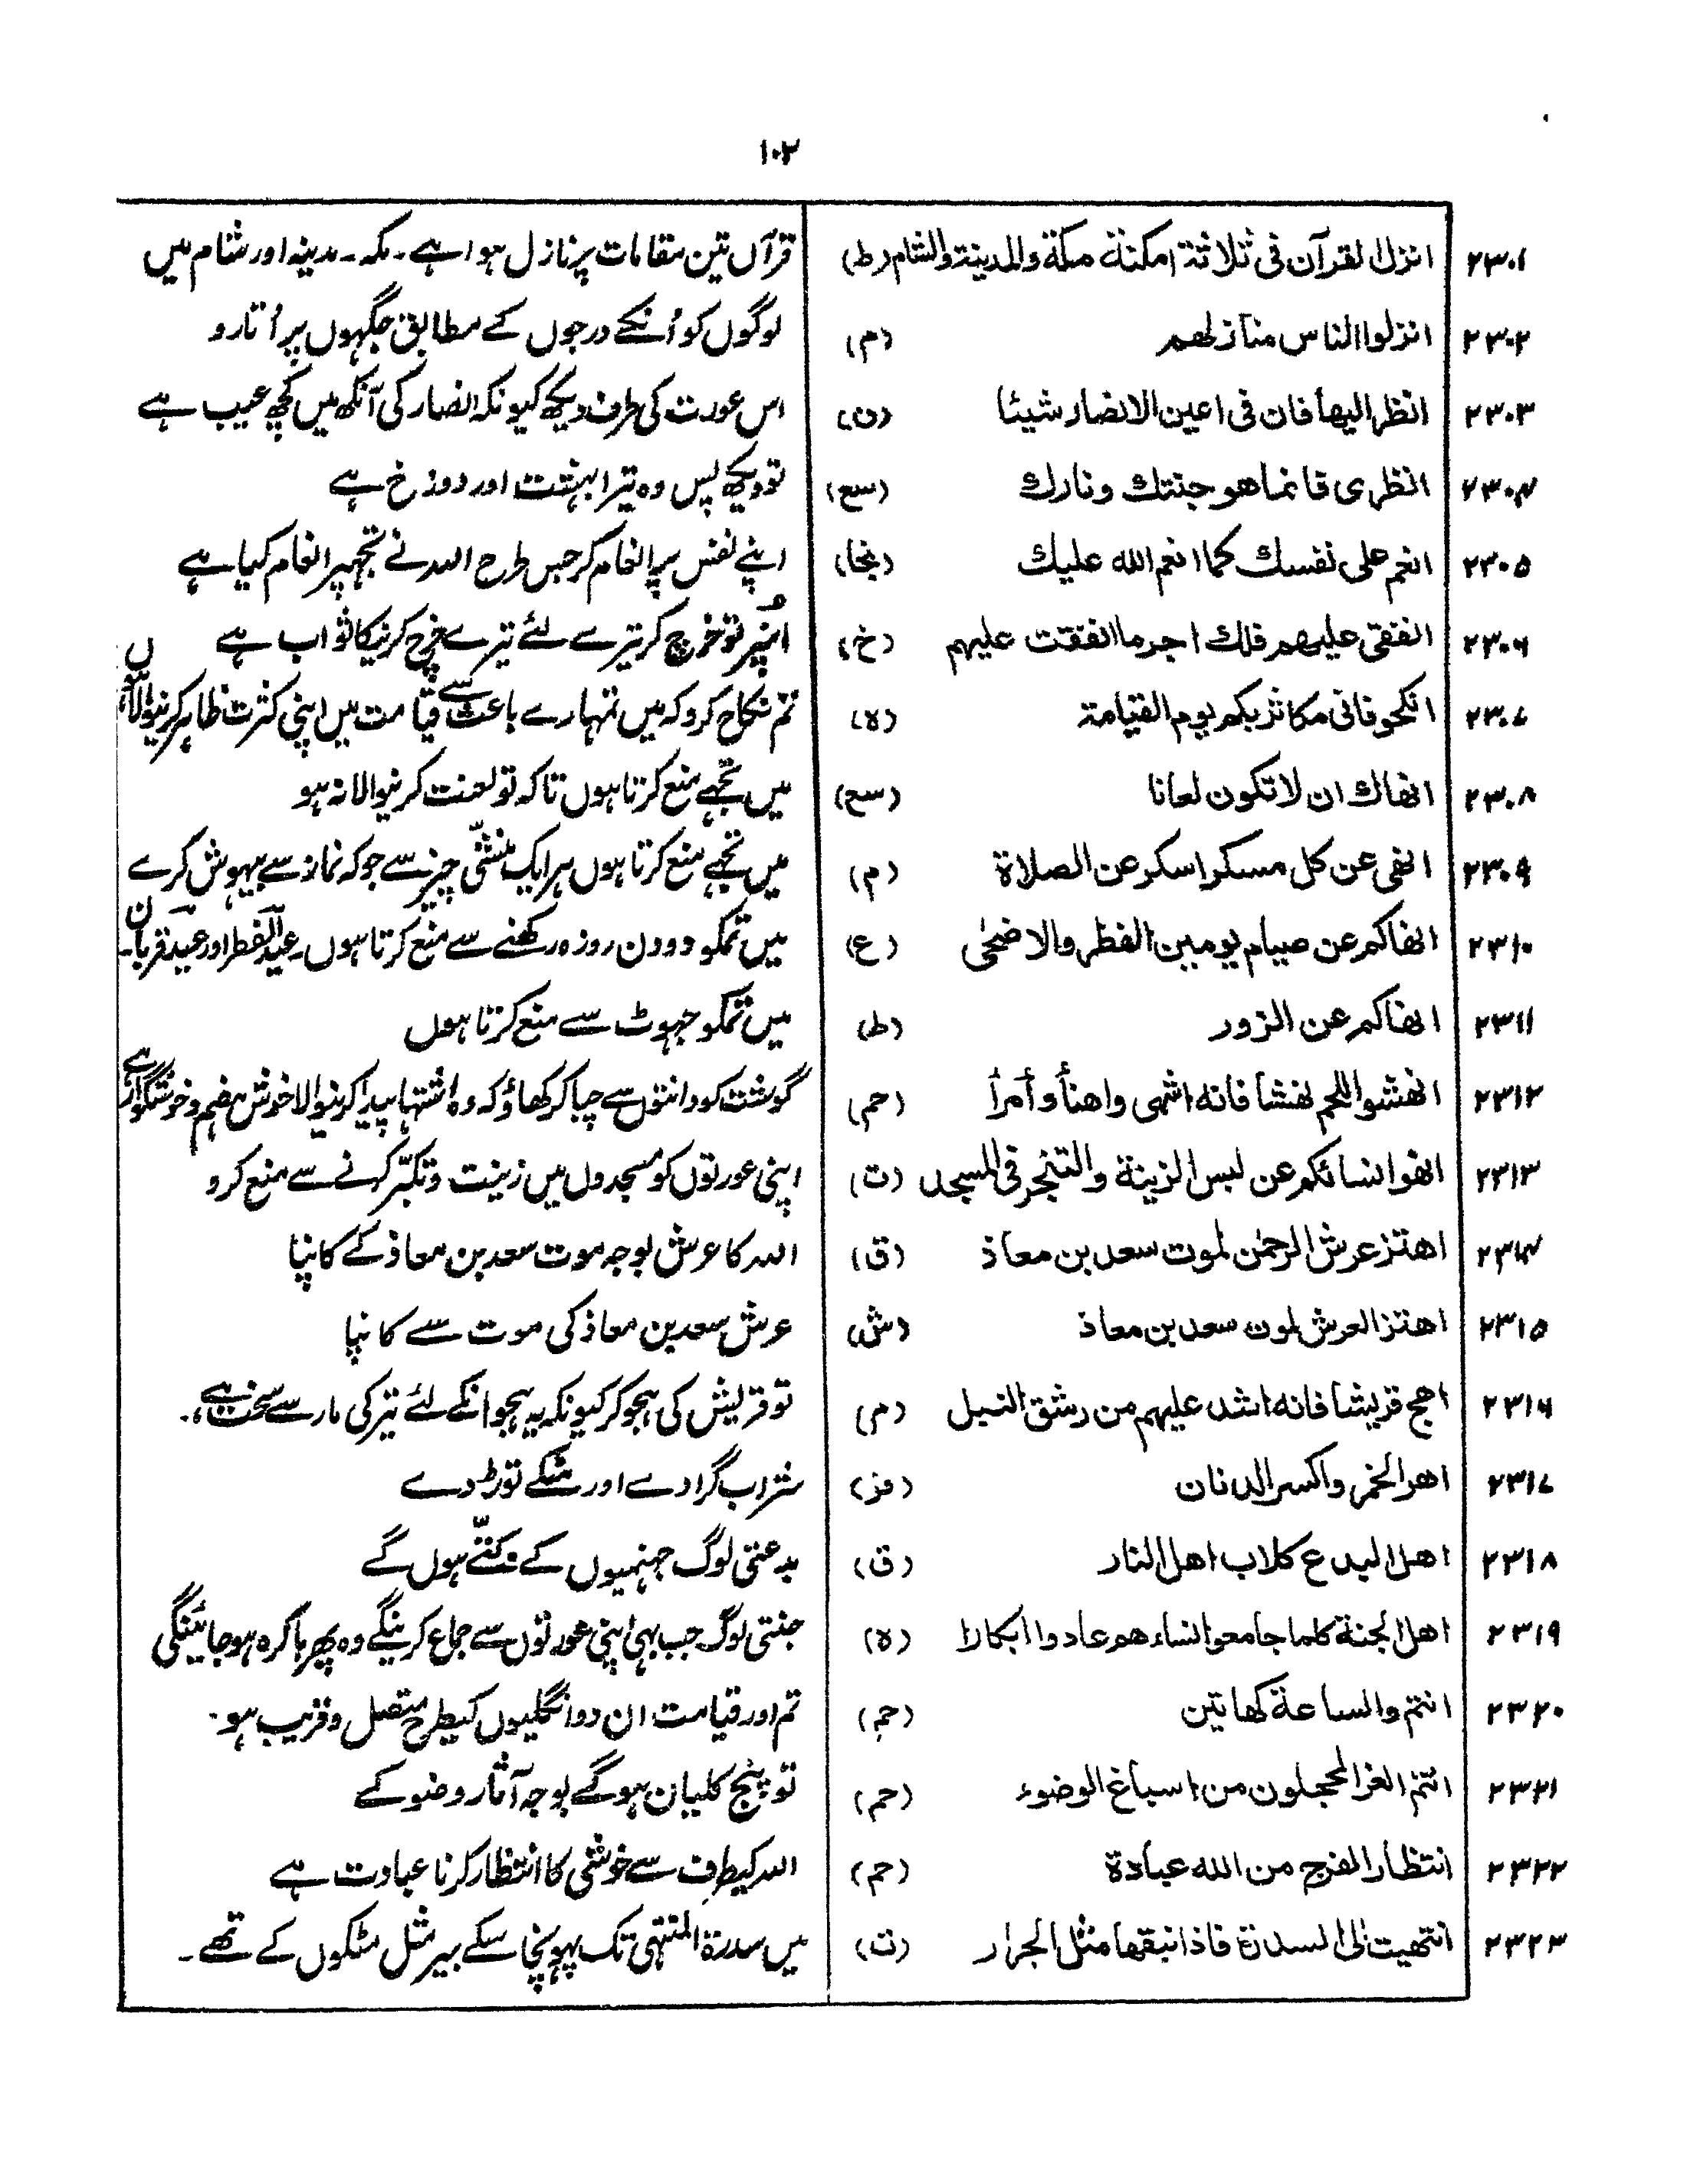 ۱۰۲
۲۳۰۱ انزل القرآن فی ثلاثة امکنة مکة والمدینة والشام (ط) قرآن تین مقامات پر نازل ہوا ہے ۔ مکہ ۔ مدینہ اور شام میں
۲۳۰۲ انزلوا الناس منازلهم (م) لوگوں کو اُنکے درجوں کے مطابق جگہوں پر اُتارو
۲۳۰۳ انظر الیها فان فی اعین الانصار شیئا (ن) اس عورت کی طرف دیکھ کیونکہ انصار کی آنکھ میں کچھ عیب ہے
۲۳۰۴ انظری فانما هو جنتك ونارك (سع) تو دیکھ پس وہ تیرا بہشت اور دوزخ ہے
۲۳۰۵ انعم علی نفسك کما انعم الله علیك (نجا) اپنے نفس پر انعام کر جس طرح اللہ نے تجھپر انعام کیا ہے
۲۳۰۶ انفقی علیهم فلك اجر ما انفقت علیهم (خ) اُنپر تو خرچ کر تیرے لئے تیرے خرچ کرنیکا ثواب ہے
۲۳۰۷ انکحوا فانی مکاثر بکم یوم القیامة (ہ) تم نکاح کرو کہ میں تمہارے باعث سے قیامت میں اپنی کثرت ظاہر کرنیوالا ہوں
۲۳۰۸ انهاك ان لا تکون لعانا (سع) میں تجھے منع کرتا ہوں تاکہ تو لعنت کرنیوالا نہ ہو
۲۳۰۹ انهی عن کل مسکر اسکر عن الصلاة (م) میں تجھے منع کرتا ہوں ہر ایک منشّی چیز سے جو کہ نماز سے بیہوش کرے
۲۳۱۰ انهاکم عن صیام یومین الفطر والاضحٰی (ع) میں تمکو دو دن روزہ رکھنے سے منع کرتا ہوں عید الفطر اور عید قربان ۔
۲۳۱۱ انهاکم عن الزور (ط) میں تمکو جہوٹ سے منع کرتا ہوں
۲۳۱۲ انهشوا اللحم نهشا فانه اشهی واهنأ وأمرأ (حم) گوشت کو دانتوں سے چبا کر کھاؤ کہ وہ اشتہا پیدا کرنیوالا خوش ہضم و خوشگوار ہے
۲۳۱۳ انهوا نسائکم عن لبس الزینة والتبختر فی المسجد (ت) اپنی عورتوں کو مسجدوں میں زینت و تکبّر کرنے سے منع کرو
۲۳۱۴ اهتز عرش الرحمٰن لموت سعد بن معاذ (ق) اللہ کا عرش بوجہ موت سعد بن معاذ کے کانپا
۲۳۱۵ اهتز العرش لموت سعد بن معاذ (ش) عرش سعد بن معاذ کی موت سے کانپا
۲۳۱۶ اهج قریشا فانه اشد علیهم من رشق النبل (م) تو قریش کی ہجو کر کیونکہ یہ ہجو انکے لئے تیر کی مار سے سخت ہے ۔
۲۳۱۷ اهر الخمر واکسر الدنان شراب گرا دے اور مٹکے توڑ دے
۲۳۱۸ اهل البدع کلاب اهل النار (ق) بدعتی لوگ جہنمیوں کے کتّے ہوں گے
۲۳۱۹ اهل الجنة کلما جامعوا نساء هم عادوا ابکارا (ہ) جنتی لوگ جب بہی اپنی عورتوں سے جماع کرینگے وہ پھر باکرہ ہو جائینگی
۲۳۲۰ انتم والساعة کهاتین (حم) تم اور قیامت ان دو انگلیوں کیطرح متصل و قریب ہو ۔
۲۳۲۱ انتم الغر المحجلون من اسباغ الوضوء (حم) تو پنج کلیان ہو گے بوجہ آثار وضو کے
۲۳۲۲ انتظار الفرج من الله عبادة (حم) اللہ کیطرف سے خوشی کا انتظار کرنا عبادت ہے
۲۳۲۳ انتهیت الی السدرة فاذا نبقها مثل الجرار (ت) میں سدرة المنتهی تک پہونچا سکے بیر مثل مٹکوں کے تھے ۔